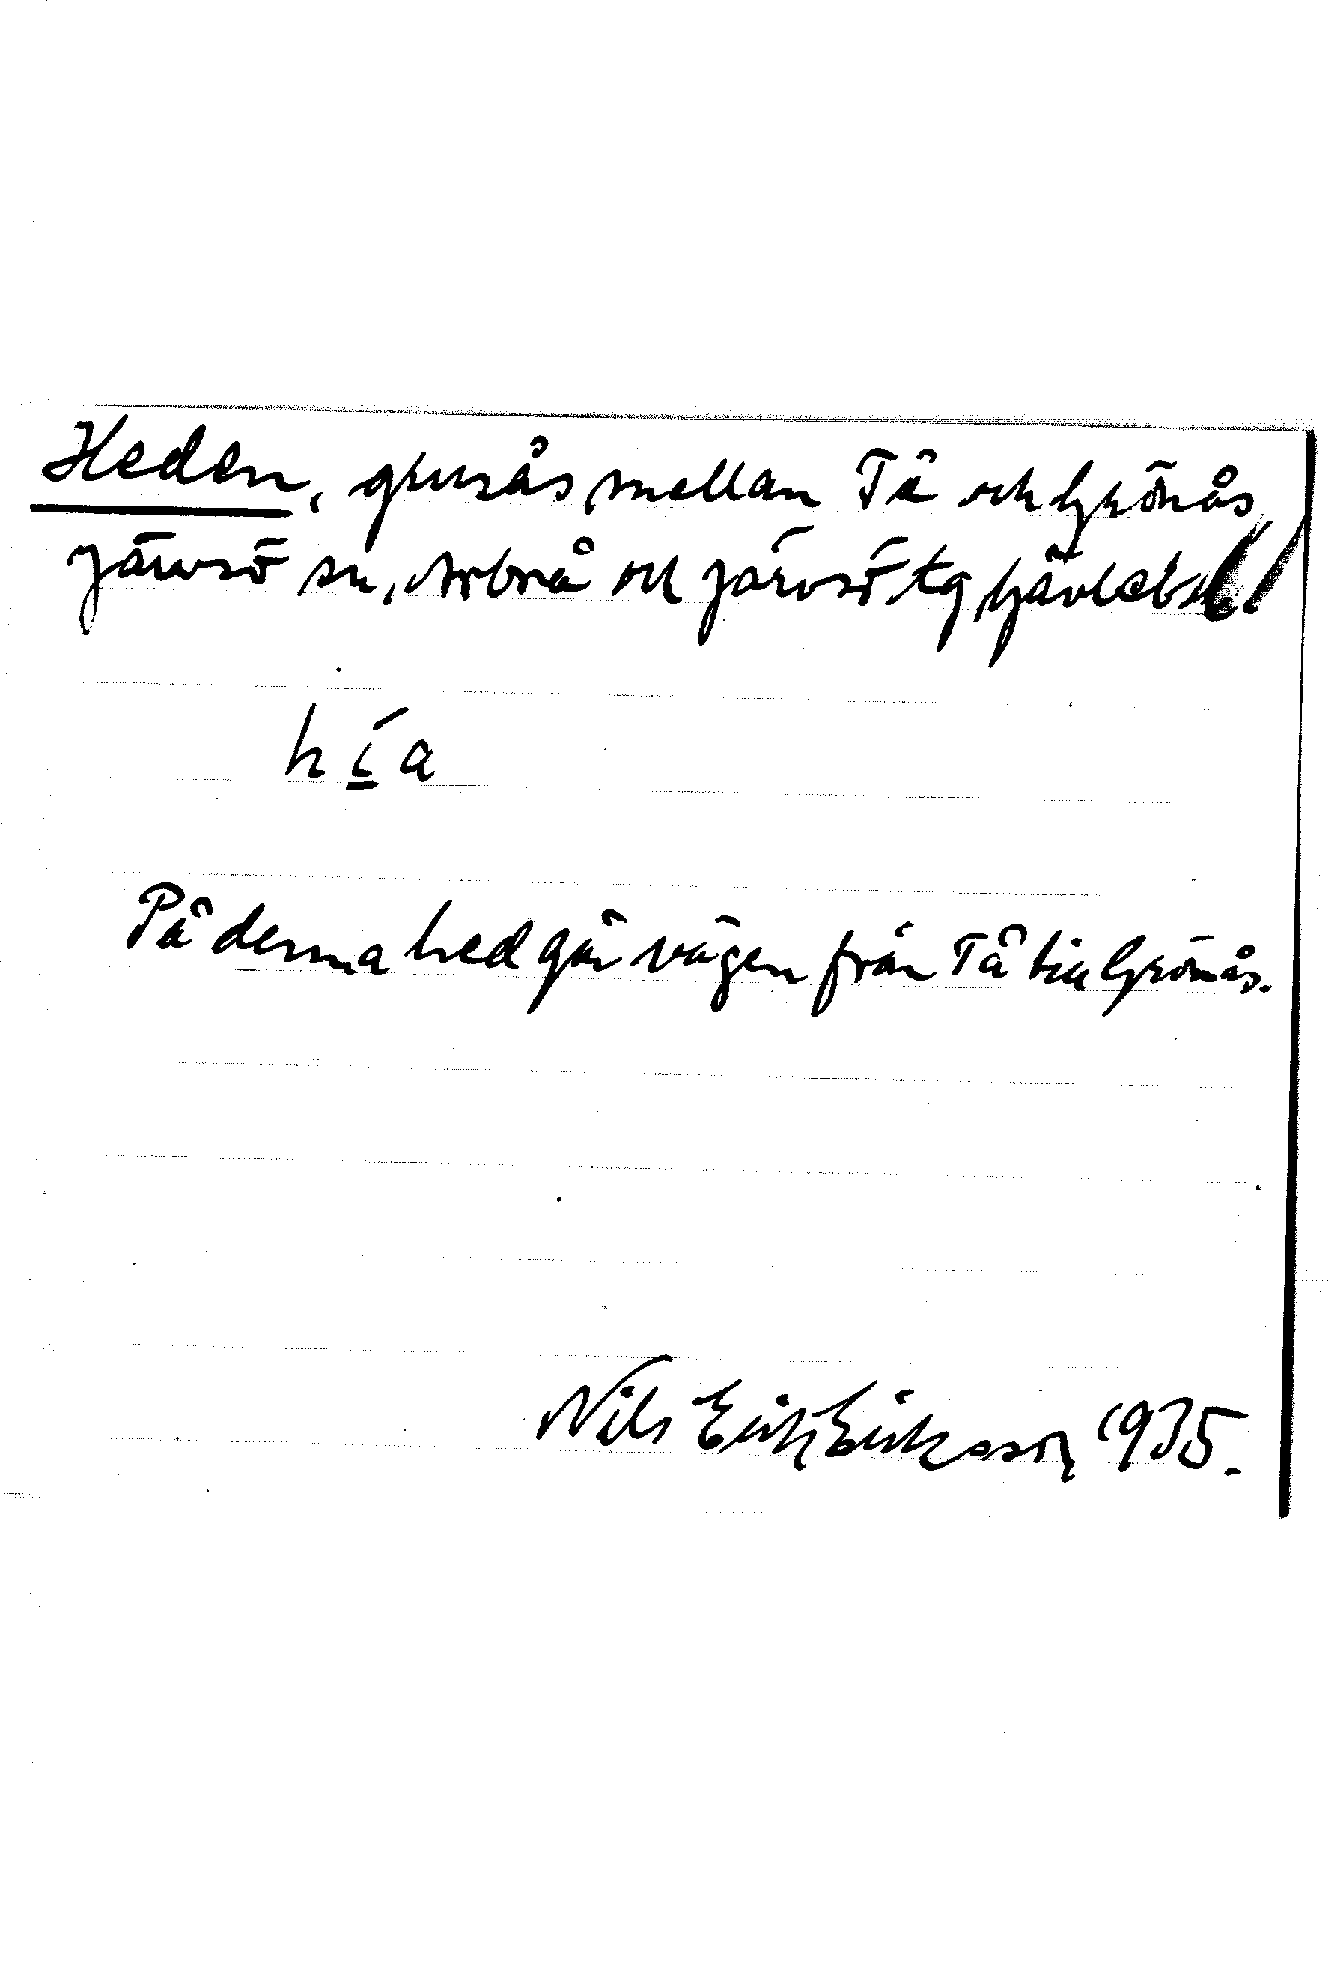 Heden, grusås mellan Tå och Grönås
Järvsö sn, Arbrå och Järvsö tg Gävleb
hí̲a
På denna hed går vägen från Tå till Grönås.
Nils Erik Eriksson 1935.